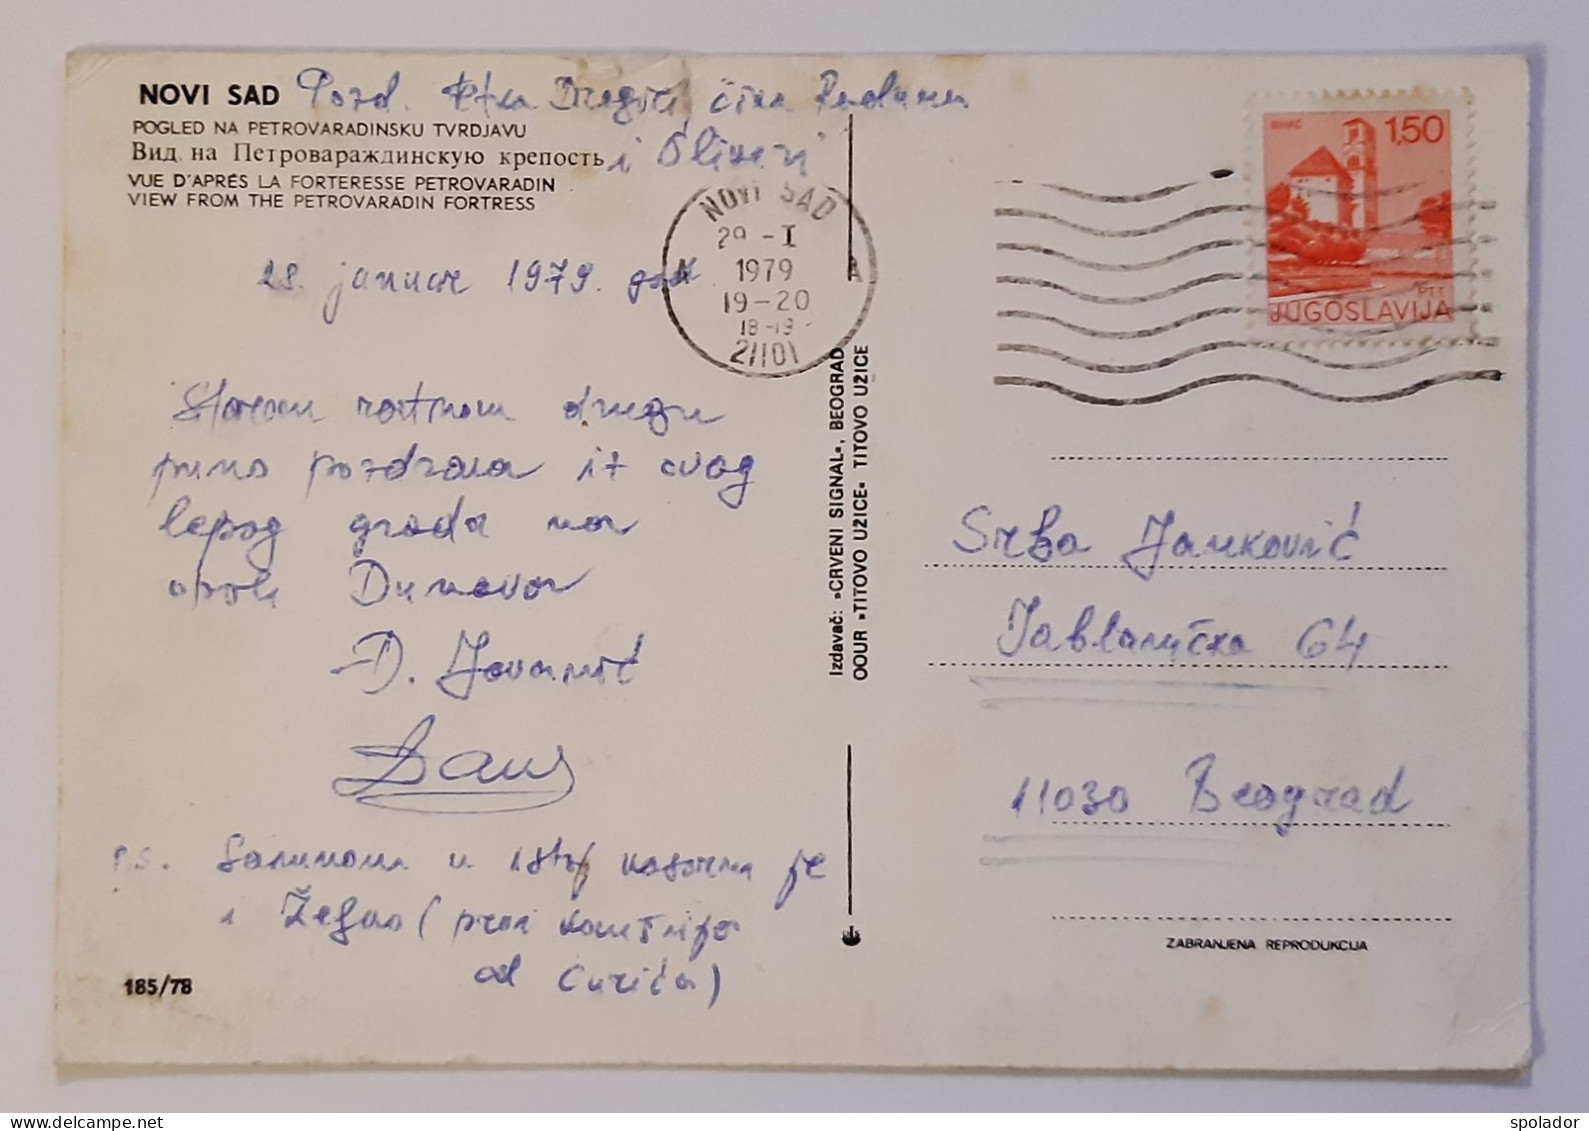 NOVI SAD Pozd. tetka Dragici, čika Radanu
POGLED NA PETROVARADINSKU TVRDJAVU
Вид на Петровараждинскую крепость i Oliveri
VUE D'APRÉS LA FORTERESSE PETROVARADIN
VIEW FROM THE PETROVARADIN FORTRESS
NOVI SAD
29-I
1979
19-20
18-19
21101
A
BIHAĆ
1,50
PTT
JUGOSLAVIJA
28. januar 1979. god.
Starom ratnom drugu
puno pozdrava iz ovog
lepog grada na
obali Dunava
D. Jovanović
P.S. Sa nama u kasarna je
i Željao (prvi komšija
od Curića)
185/78
Izdavač: »CRVENI SIGNAL«, BEOGRAD
OOUR »TITOVO UŽICE« TITOVO UŽICE
Srba Janković
Jablanička 64
11030 Beograd
ZABRANJENA REPRODUKCIJA
spolador